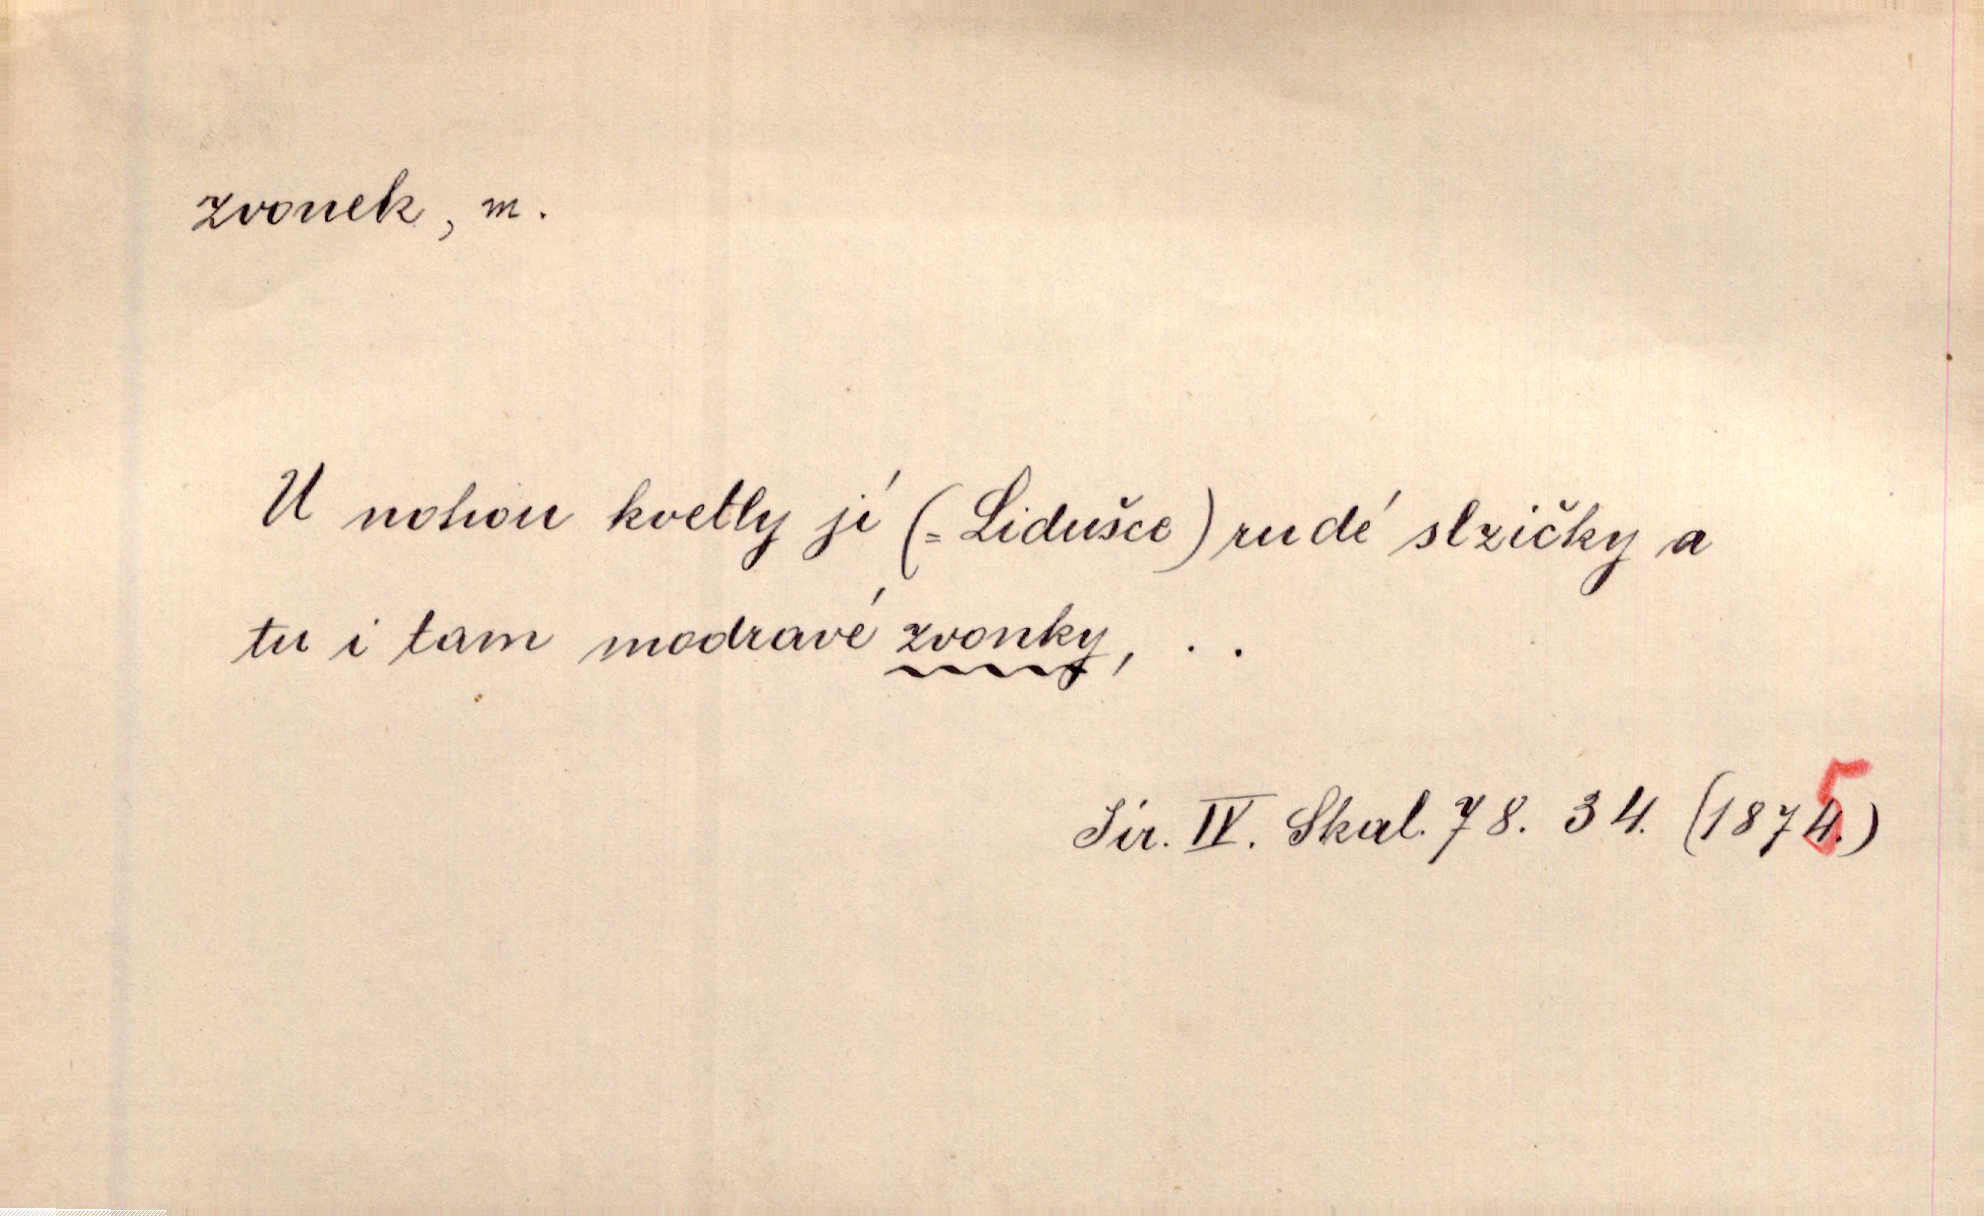 zvonek, m.
U nohou kvetly jí (= Lidušce) rudé slzičky a
tu i tam modravé zvonky, . .
Jir. IV. Skal. 78. 34. (1875.)